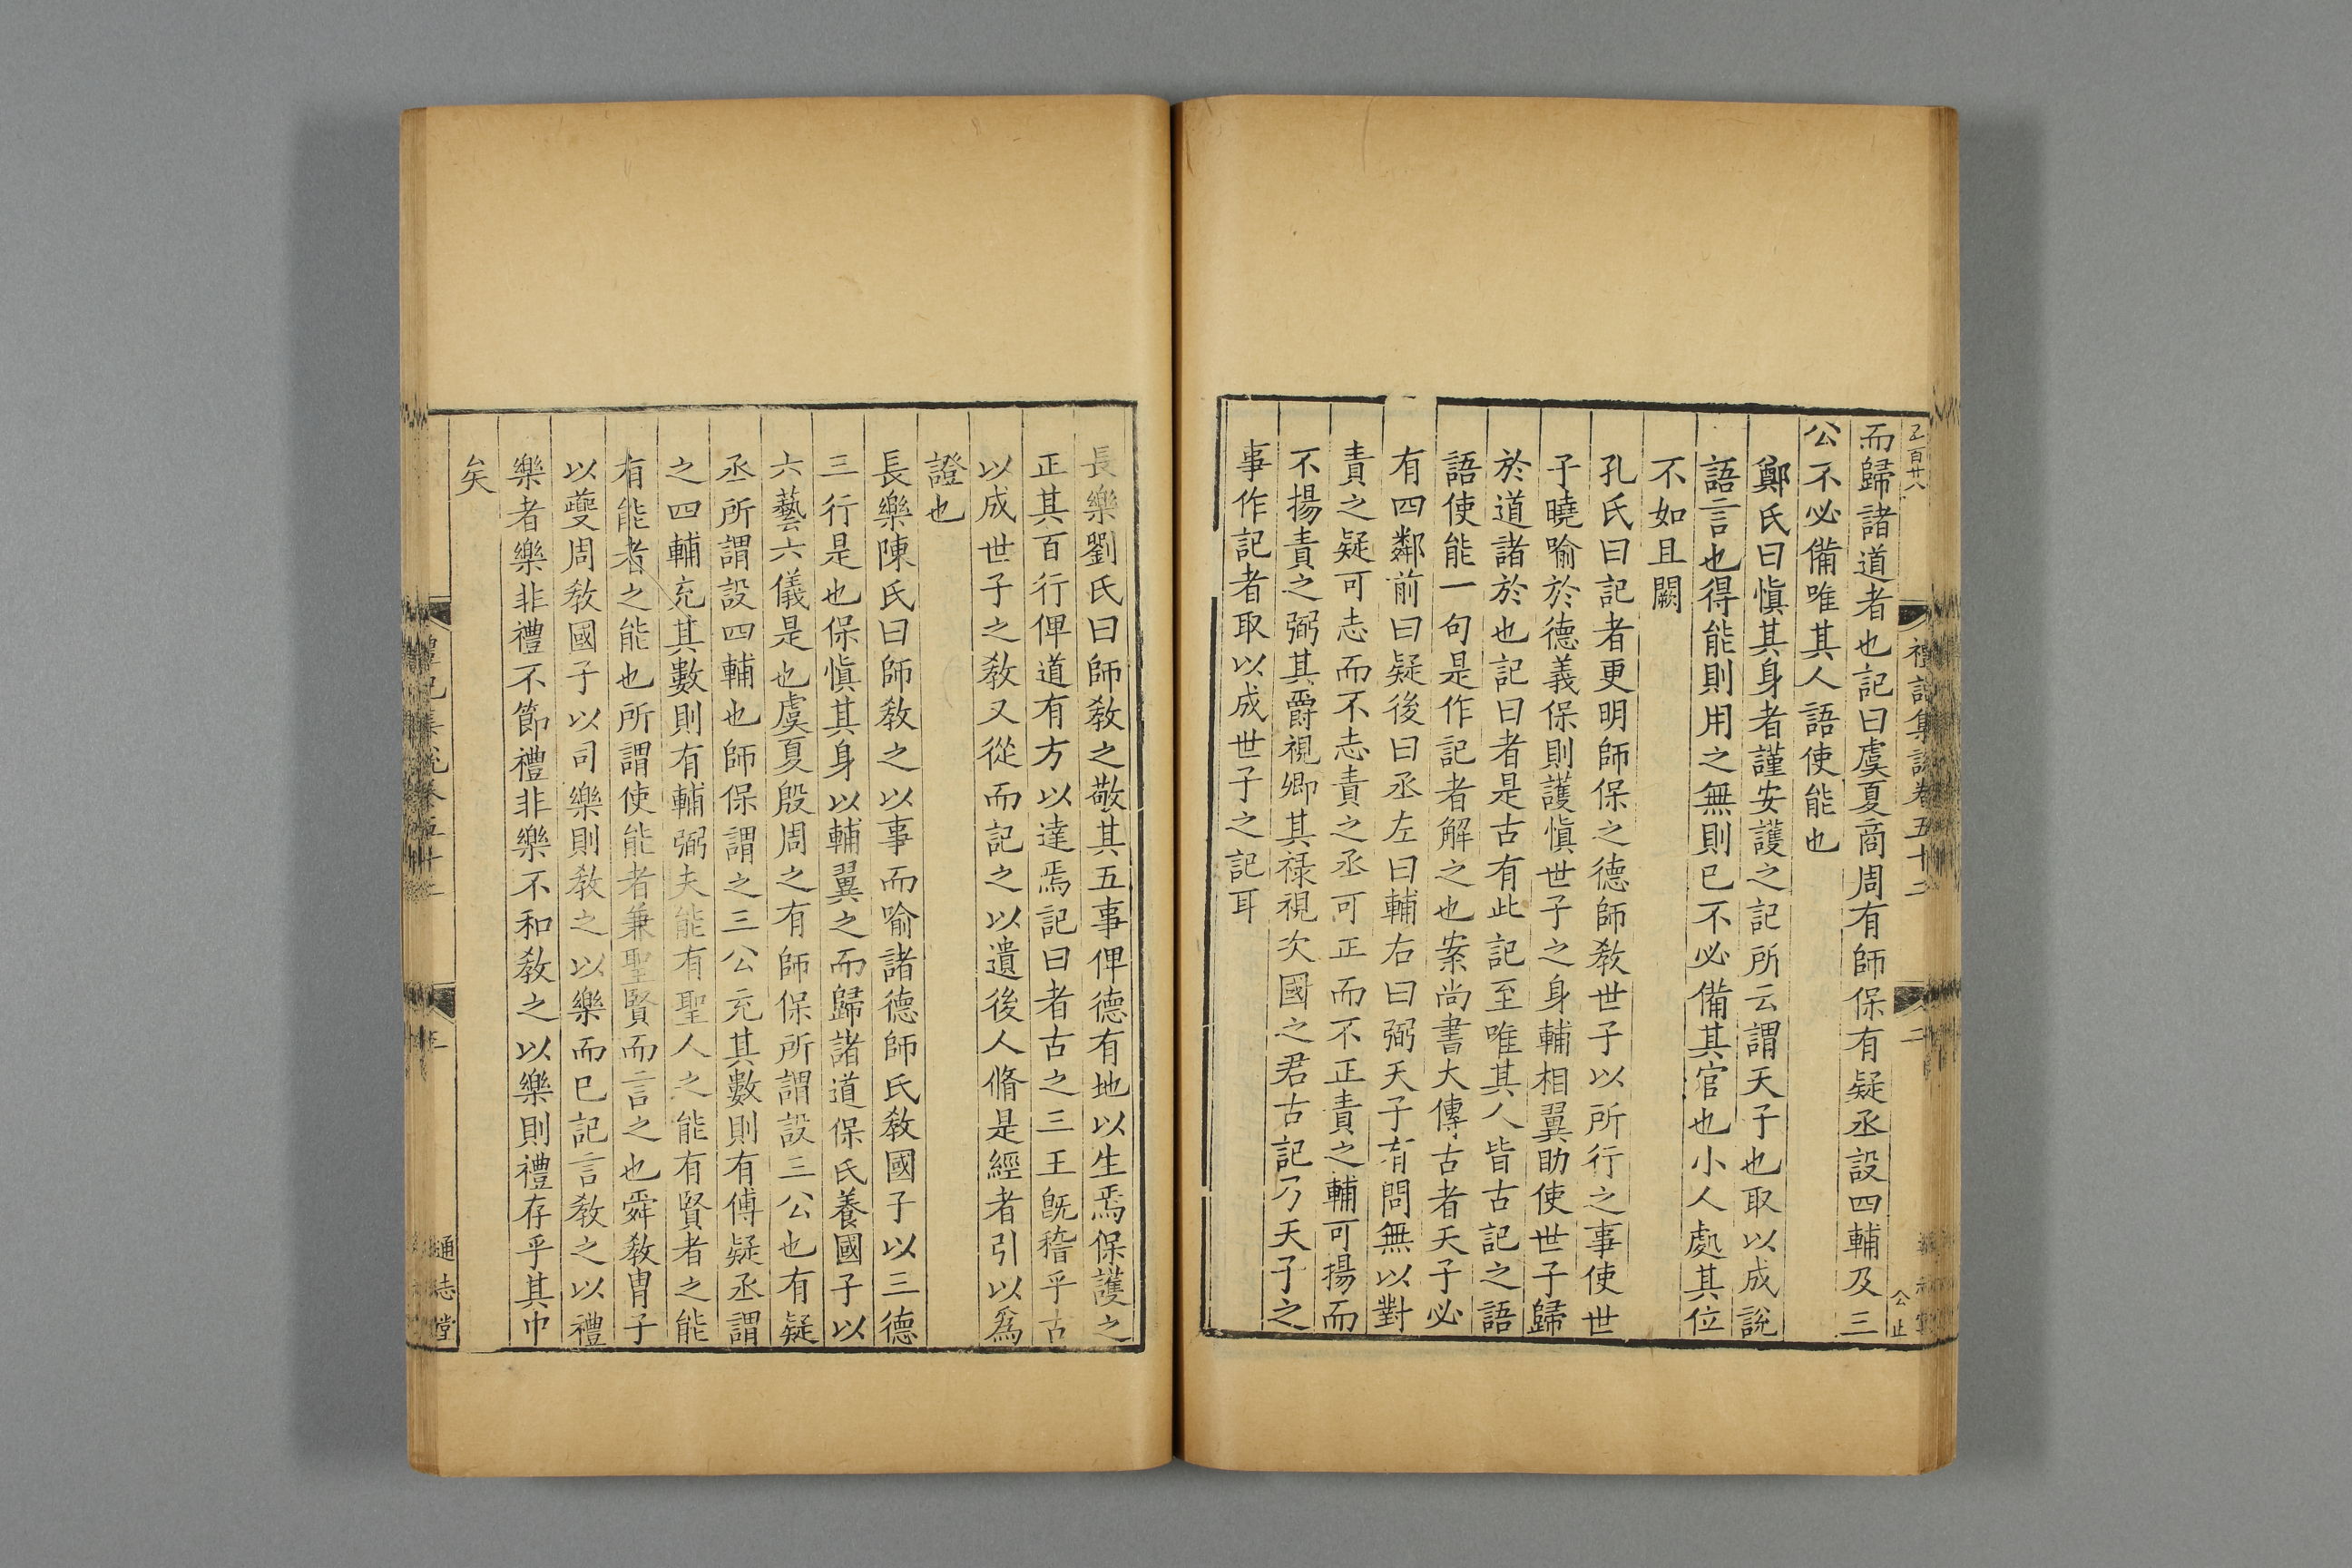 而歸諸道者也記曰虞夏商周有師保有疑丞設四輔及三
公不必備唯其人語使能也
鄭氏曰慎其身者謹安護之記所云謂天子也取以成說
語言也得能則用之無則已不必備其官也小人處其位
不如且闕
孔氏曰記者更明師保之德師敎世子以所行之事使世
子曉喻於德義保則護慎世子之身輔相翼助使世子歸
於道諸於也記曰者是古有此記至唯其人皆古記之語
語使能一句是作記者解之也案尚書大傳古者天子必
有四鄰前曰疑後曰丞左曰輔右曰弼天子有問無以對
責之疑可志而不志責之丞可正而不正責之輔可揚而
不揚責之弼其爵視卿其祿視次國之君古記乃天子之
事作記者取以成世子之記耳
禮記集說卷五十二
二
公止
長樂劉氏曰師敎之敬其五事俾德有地以生焉保護之
正其百行俾道有方以達焉記曰者古之三王旣稽乎古
以成世子之敎又從而記之以遺後人脩是經者引以爲
證也
長樂陳氏曰師敎之以事而喻諸德師氏敎國子以三德
三行是也保慎其身以輔翼之而歸諸道保氏養國子以
六藝六儀是也虞夏殷周之有師保所謂設三公也有疑
丞所謂設四輔也師保謂之三公充其數則有傅疑丞謂
之四輔充其數則有輔弼夫能有聖人之能有賢者之能
有能者之能也所謂使能者兼聖賢而言之也舜敎胄子
以夔周敎國子以司樂則敎之以樂而已記言敎之以禮
樂者樂非禮不節禮非樂不和敎之以樂則禮存乎其中
矣
通志堂